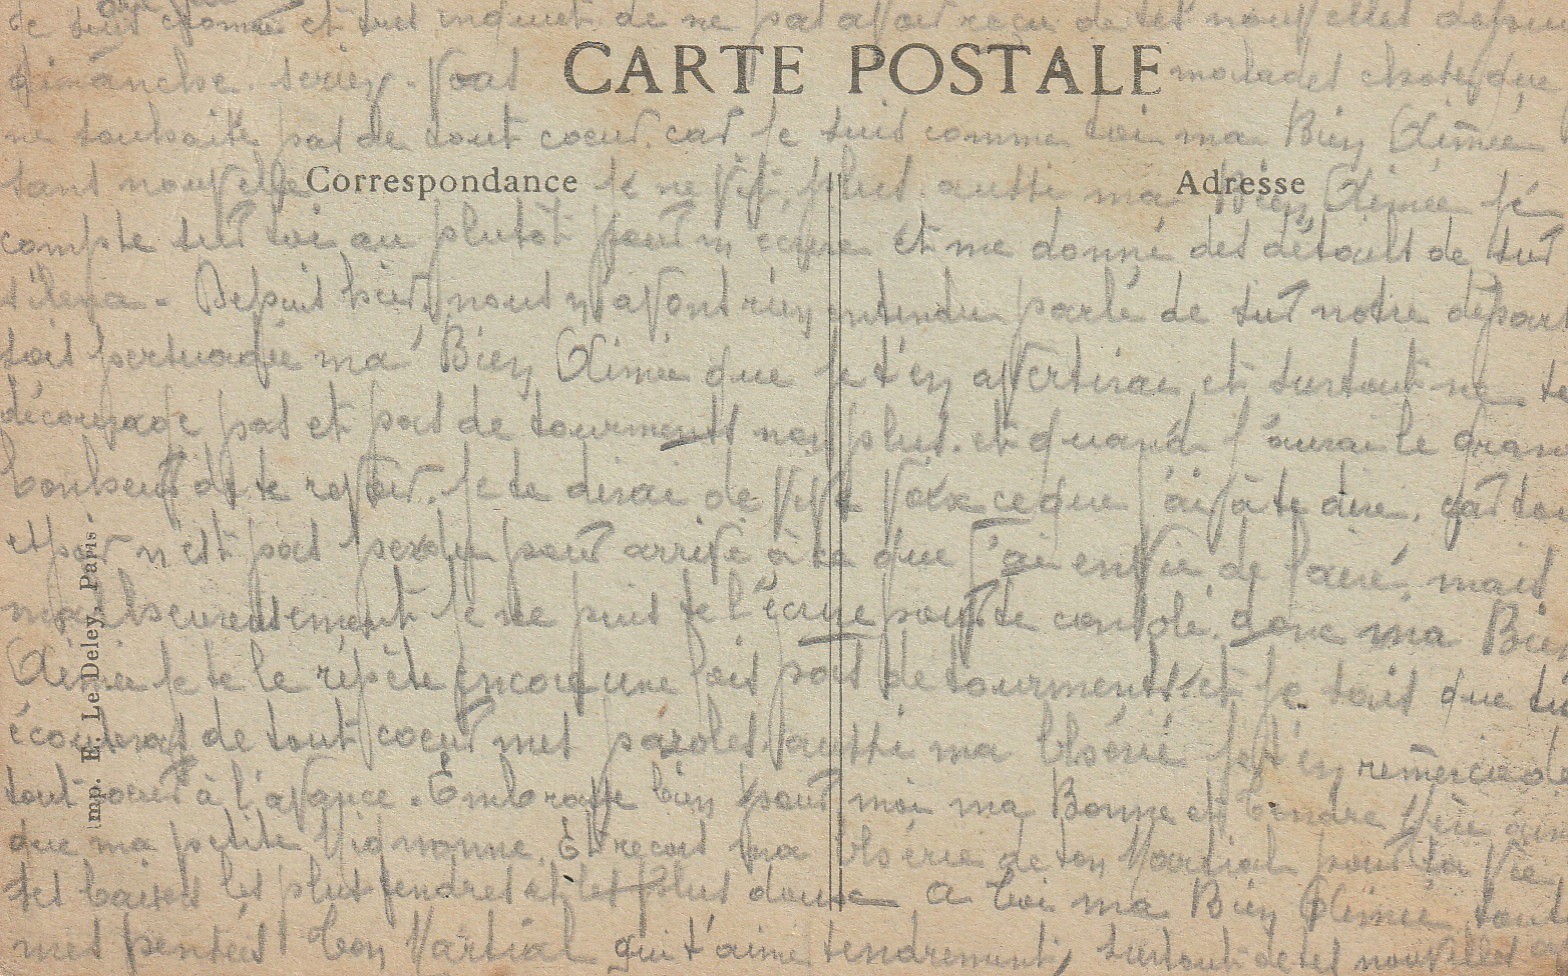 et suis inquiet de ne pas avoir reçu de tes nouvelles depuis
dimanche. seriez. Vous malades chose que
CARTE POSTALE
ne souhaite pas de tout coeur. car je suis comme toi ma Bien Aimée
sans nouvelle je ne vis plus. aussi ma Bien Aimée je
Correspondance
Adresse
compte sur toi au plutôt pour m'ecrire et me donné des détails de sur
. Depuis hier nous n'avons rien entendu parlé de sur notre départ
sois persuadée ma Bien Aimée que je t'en avertirai, et surtout ne te
décourage pas et pas de tourments non plus. et quand j'aurai le grand
bonheur de te revoir. je te dirai de vive voix ce que j'ai à te dire. car ton
espoir n'est pas perdu pour arrivé à ce que j'ai envie de faire, mais
malheureusement je ne puis te l'écrire pour te consolé. donc ma Bien
Aimée je te le répète encore une fois pas de tourments et je sais que tu
écouteras de tout coeur mes paroles aussi ma chérie je t'en remercie de
tout coeur à l'avance. Embrasse bien pour moi ma Bonne et tendre Mère ainsi
que ma petite Mignonne. Et reçois ma chérie de ton Martial pour la vie
ses baisers les plus tendres et les plus doux A toi ma Bien Aimée toutes
mes pensées ton Martial qui t'aime tendrement, surtout de tes nouvelles
Imp. E. Le Deley, Paris